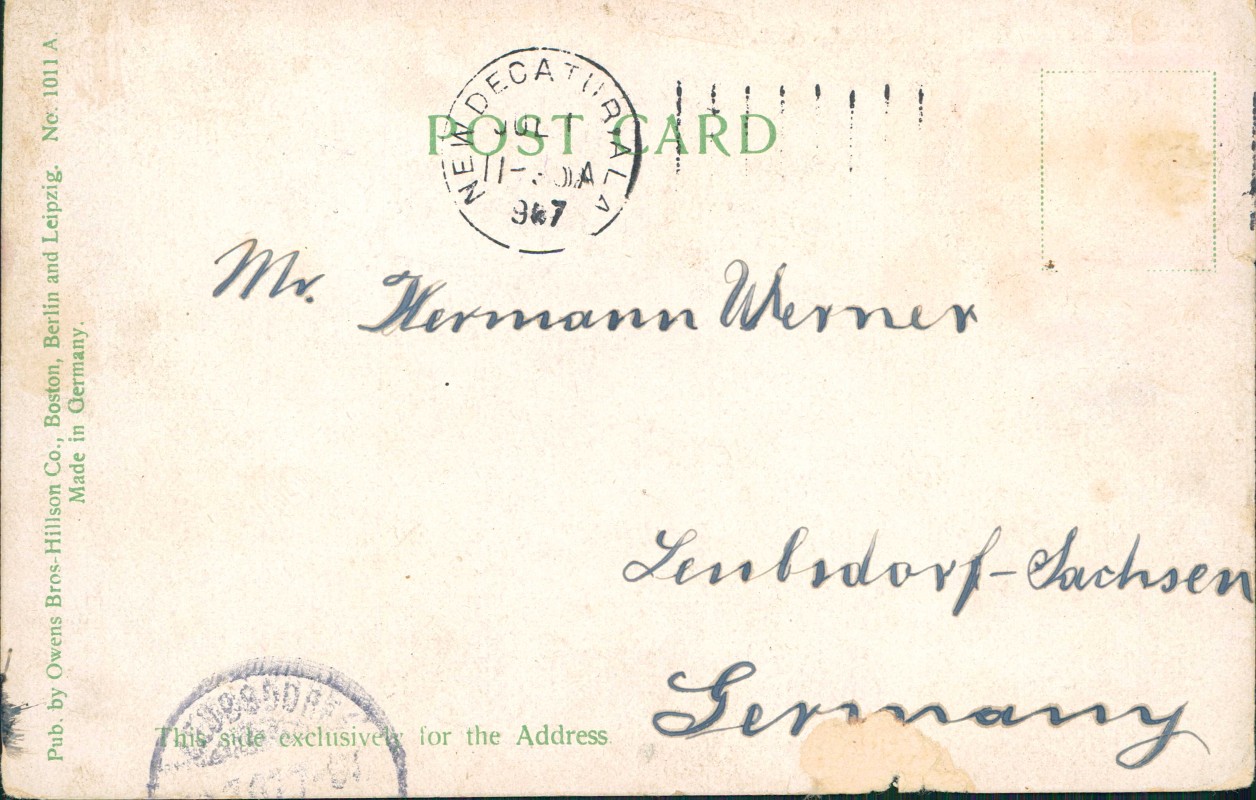 NEW DECATUR, ALA
JUL 1
11-30A
1907
POST CARD
Mr. Hermann Werner
Leubsdorf-Sachsen
Germany
This side exclusively for the Address.
Pub. by Owens Bros-Hillson Co., Boston, Berlin and Leipzig. No. 1011 A
Made in Germany.